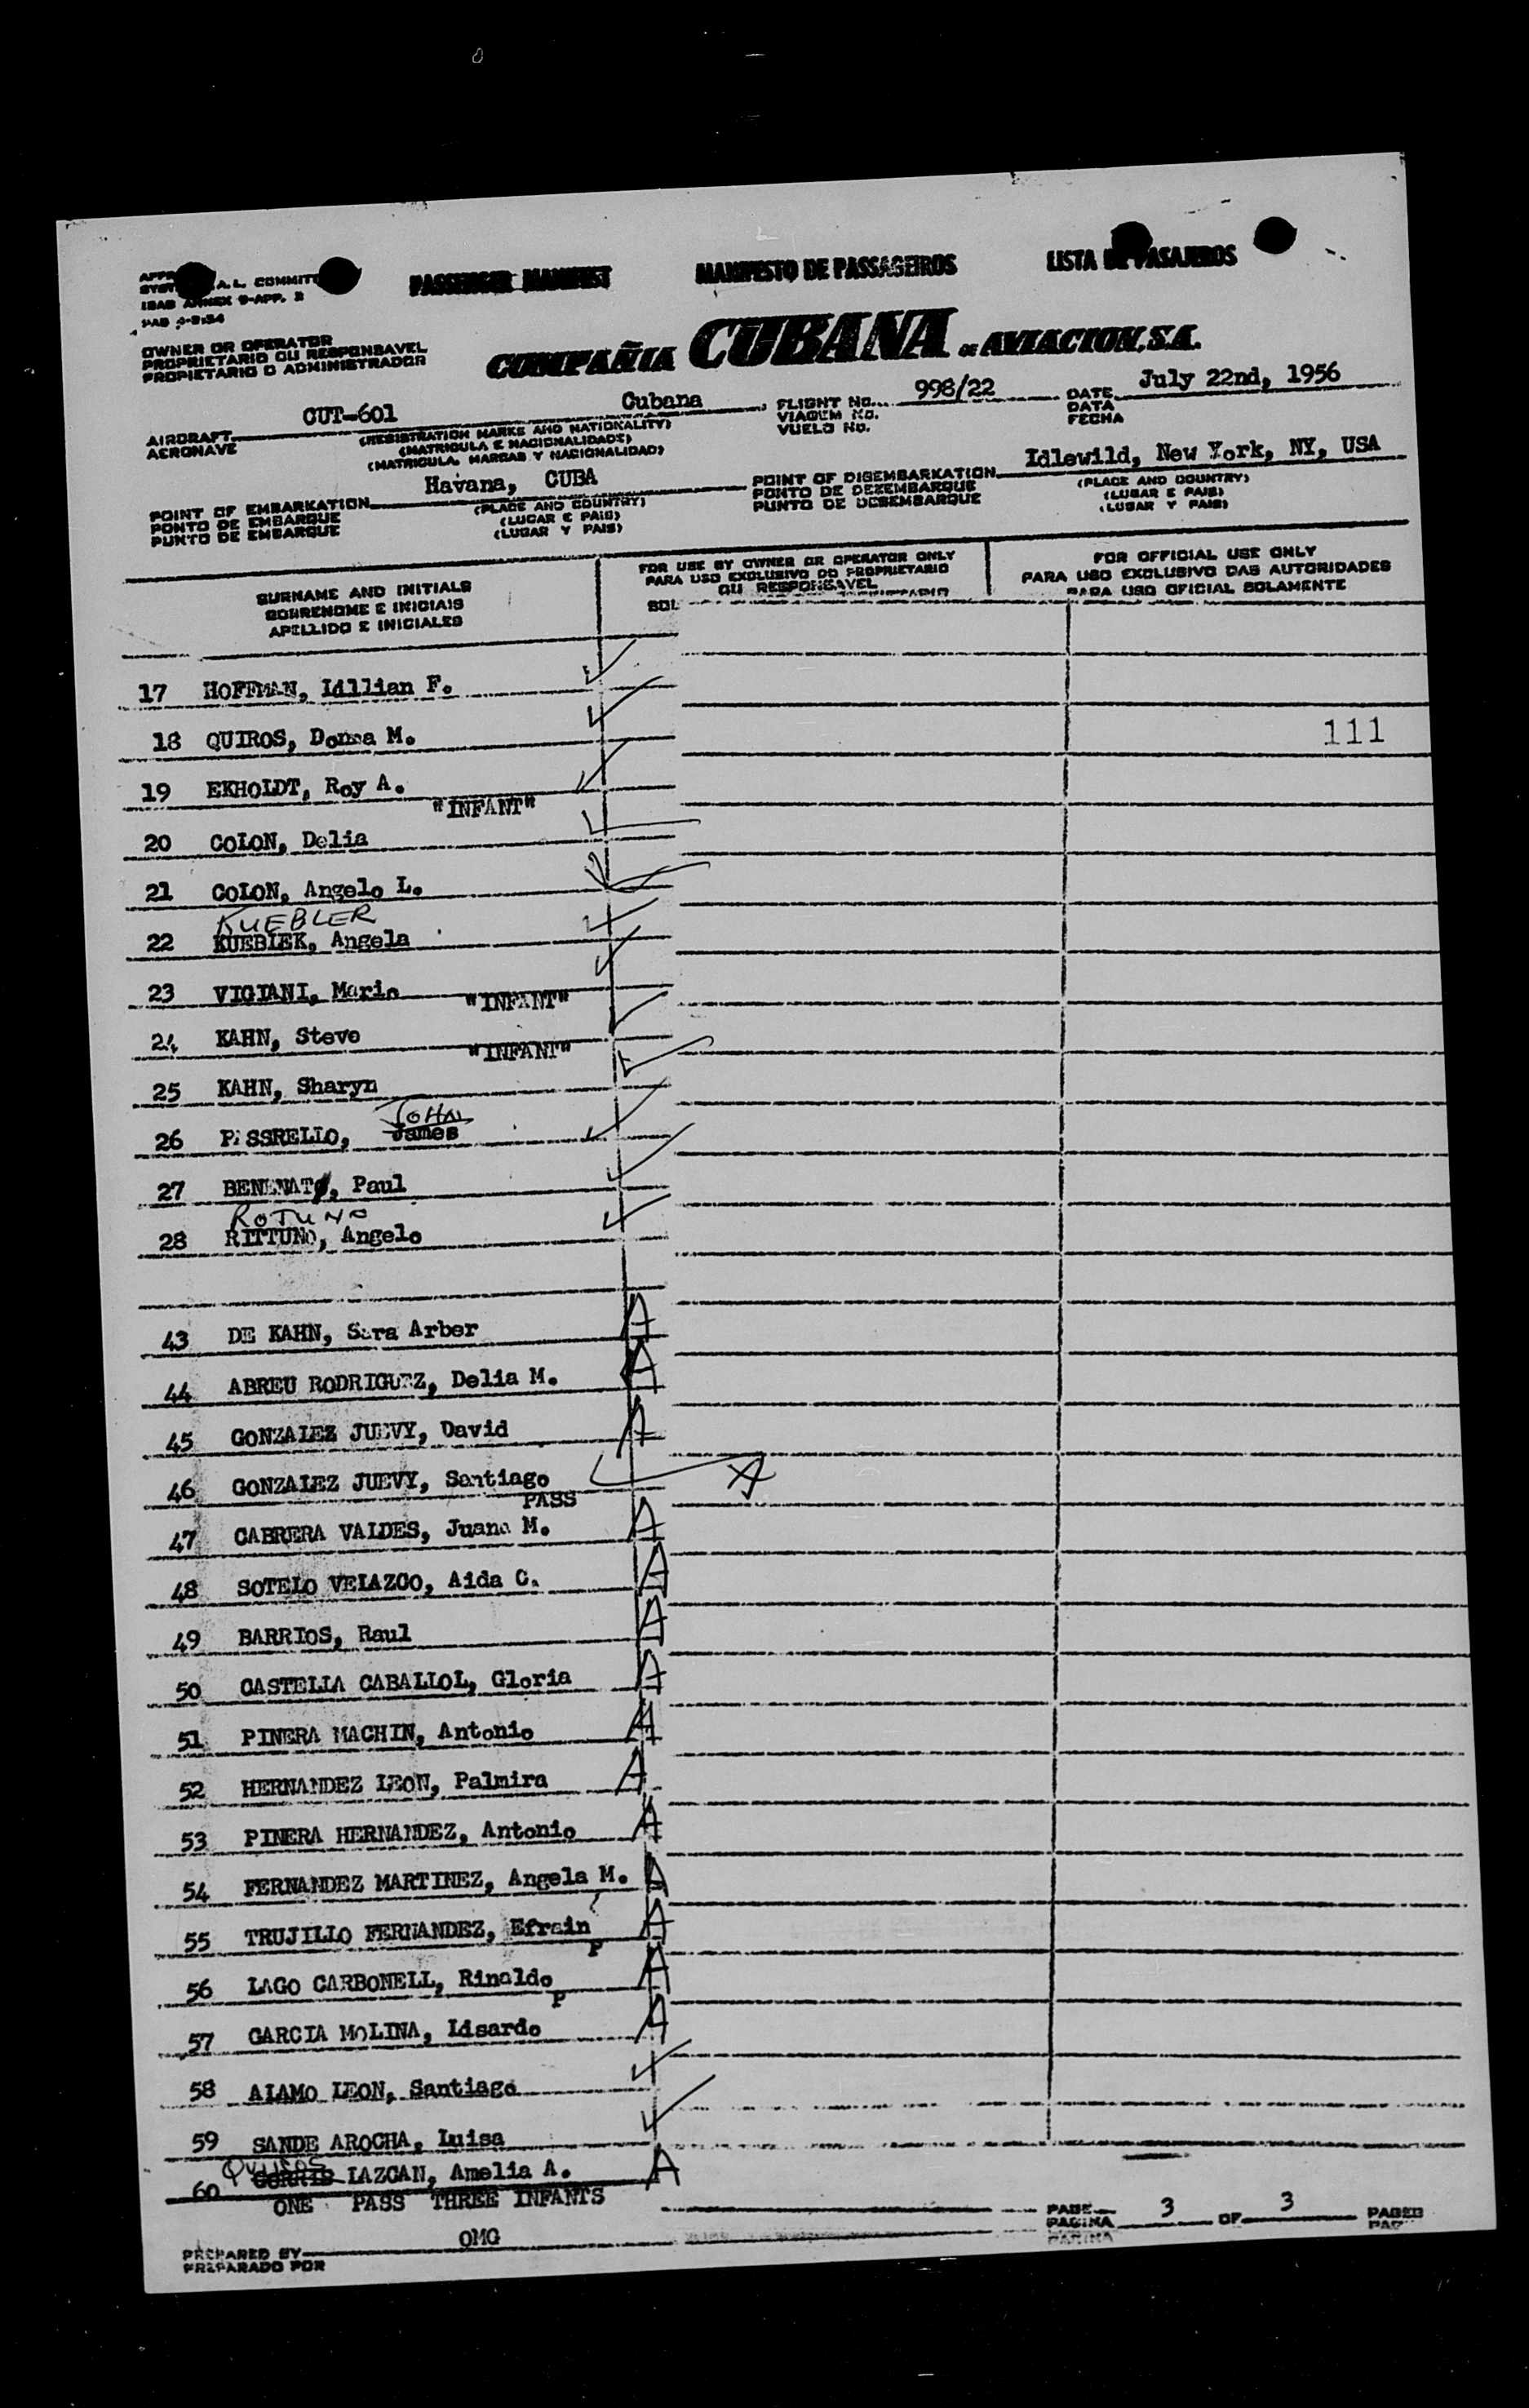 PASSENGER MANIFEST MANIFESTO DE PASSAGEIROS LISTA DE PASAJEROS
A.L. COMMITT
ANNEX 9-APP. 2
OWNER OR OPERATOR
PROPRIETARIO OU RESPONSAVEL
PROPIETARIO O ADMINISTRADOR
COMPAÑIA CUBANA DE AVIACION, S.A.
AIRCRAFT CUT-601 Cubana FLIGHT No. 998/22 DATE July 22nd, 1956
AERONAVE
(REGISTRATION MARKS AND NATIONALITY)
(MATRICULA E NACIONALIDADE)
(MATRICULA, MARCAS Y NACIONALIDAD)
VIAGEM No.
VUELO No.
DATA
FECHA
POINT OF EMBARKATION Havana, CUBA POINT OF DISEMBARKATION Idlewild, New York, NY, USA
PONTO DE EMBARQUE (PLACE AND COUNTRY) PONTO DE DEZEMBARQUE (PLACE AND COUNTRY)
PUNTO DE EMBARQUE (LUGAR E PAIS) PUNTO DE DESEMBARQUE (LUGAR E PAIS)
(LUGAR Y PAIS) (LUGAR Y PAIS)
SURNAME AND INITIALS
SOBRENOME E INICIAIS
APELLIDO E INICIALES
FOR USE BY OWNER OR OPERATOR ONLY
PARA USO EXCLUSIVO DO PROPRIETARIO
OU RESPONSAVEL
SOL
FOR OFFICIAL USE ONLY
PARA USO EXCLUSIVO DAS AUTORIDADES
PARA USO OFICIAL SOLAMENTE
17 HOFFMAN, Lillian F.
18 QUIROS, Donna M. 111
19 EKHOLDT, Roy A.
"INFANT"
20 COLON, Delia
21 COLON, Angelo L.
KUEBLER
22 KUEBLEK, Angela
23 VIGIANI, Mario
"INFANT"
24 KAHN, Steve
"INFANT"
25 KAHN, Sharyn
JOHN
26 PASSRELLO, James
27 BENENATO, Paul
ROTUNO
28 RITTUNO, Angelo
43 DE KAHN, Sara Arber A
44 ABREU RODRIGUEZ, Delia M. A
45 GONZALEZ JUEVY, David A
46 GONZALEZ JUEVY, Santiago A
PASS
47 CABRERA VALDES, Juana M. A
48 SOTELO VELAZCO, Aida C. A
49 BARRIOS, Raul A
50 CASTELLA CABALLOL, Gloria A
51 PINERA MACHIN, Antonio A
52 HERNANDEZ LEON, Palmira A
53 PINERA HERNANDEZ, Antonio A
54 FERNANDEZ MARTINEZ, Angela M. A
55 TRUJILLO FERNANDEZ, Efrain A
P
56 LAGO CARBONELL, Rinaldo A
P
57 GARCIA MOLINA, Lisardo A
58 ALAMO LEON, Santiago
59 SANDE AROCHA, Luisa
60 LAZCAN, Amelia A. A
ONE PASS THREE INFANTS
PAGE 3 OF 3 PAGES
PAGINA
PREPARED BY OMG
PREPARADO POR